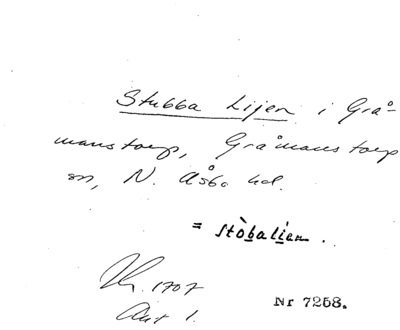 Stubba Lijen i Grå-
manstorp, Gråmanstorp
sn, N. Åsbo hd.
= stòbalien.
Kr. 1707
Akt 1.
Nr 7258.